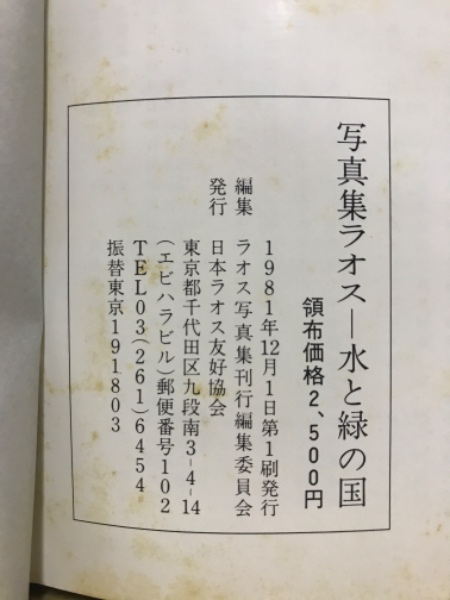 写真集ラオス―水と緑の国
領布価格2、500円
1981年12月1日第1刷発行
編集 ラオス写真集刊行編集委員会
発行 日本ラオス友好協会
東京都千代田区九段南3-4-14
(エビハラビル)郵便番号102
TEL03(261)6454
振替東京191803